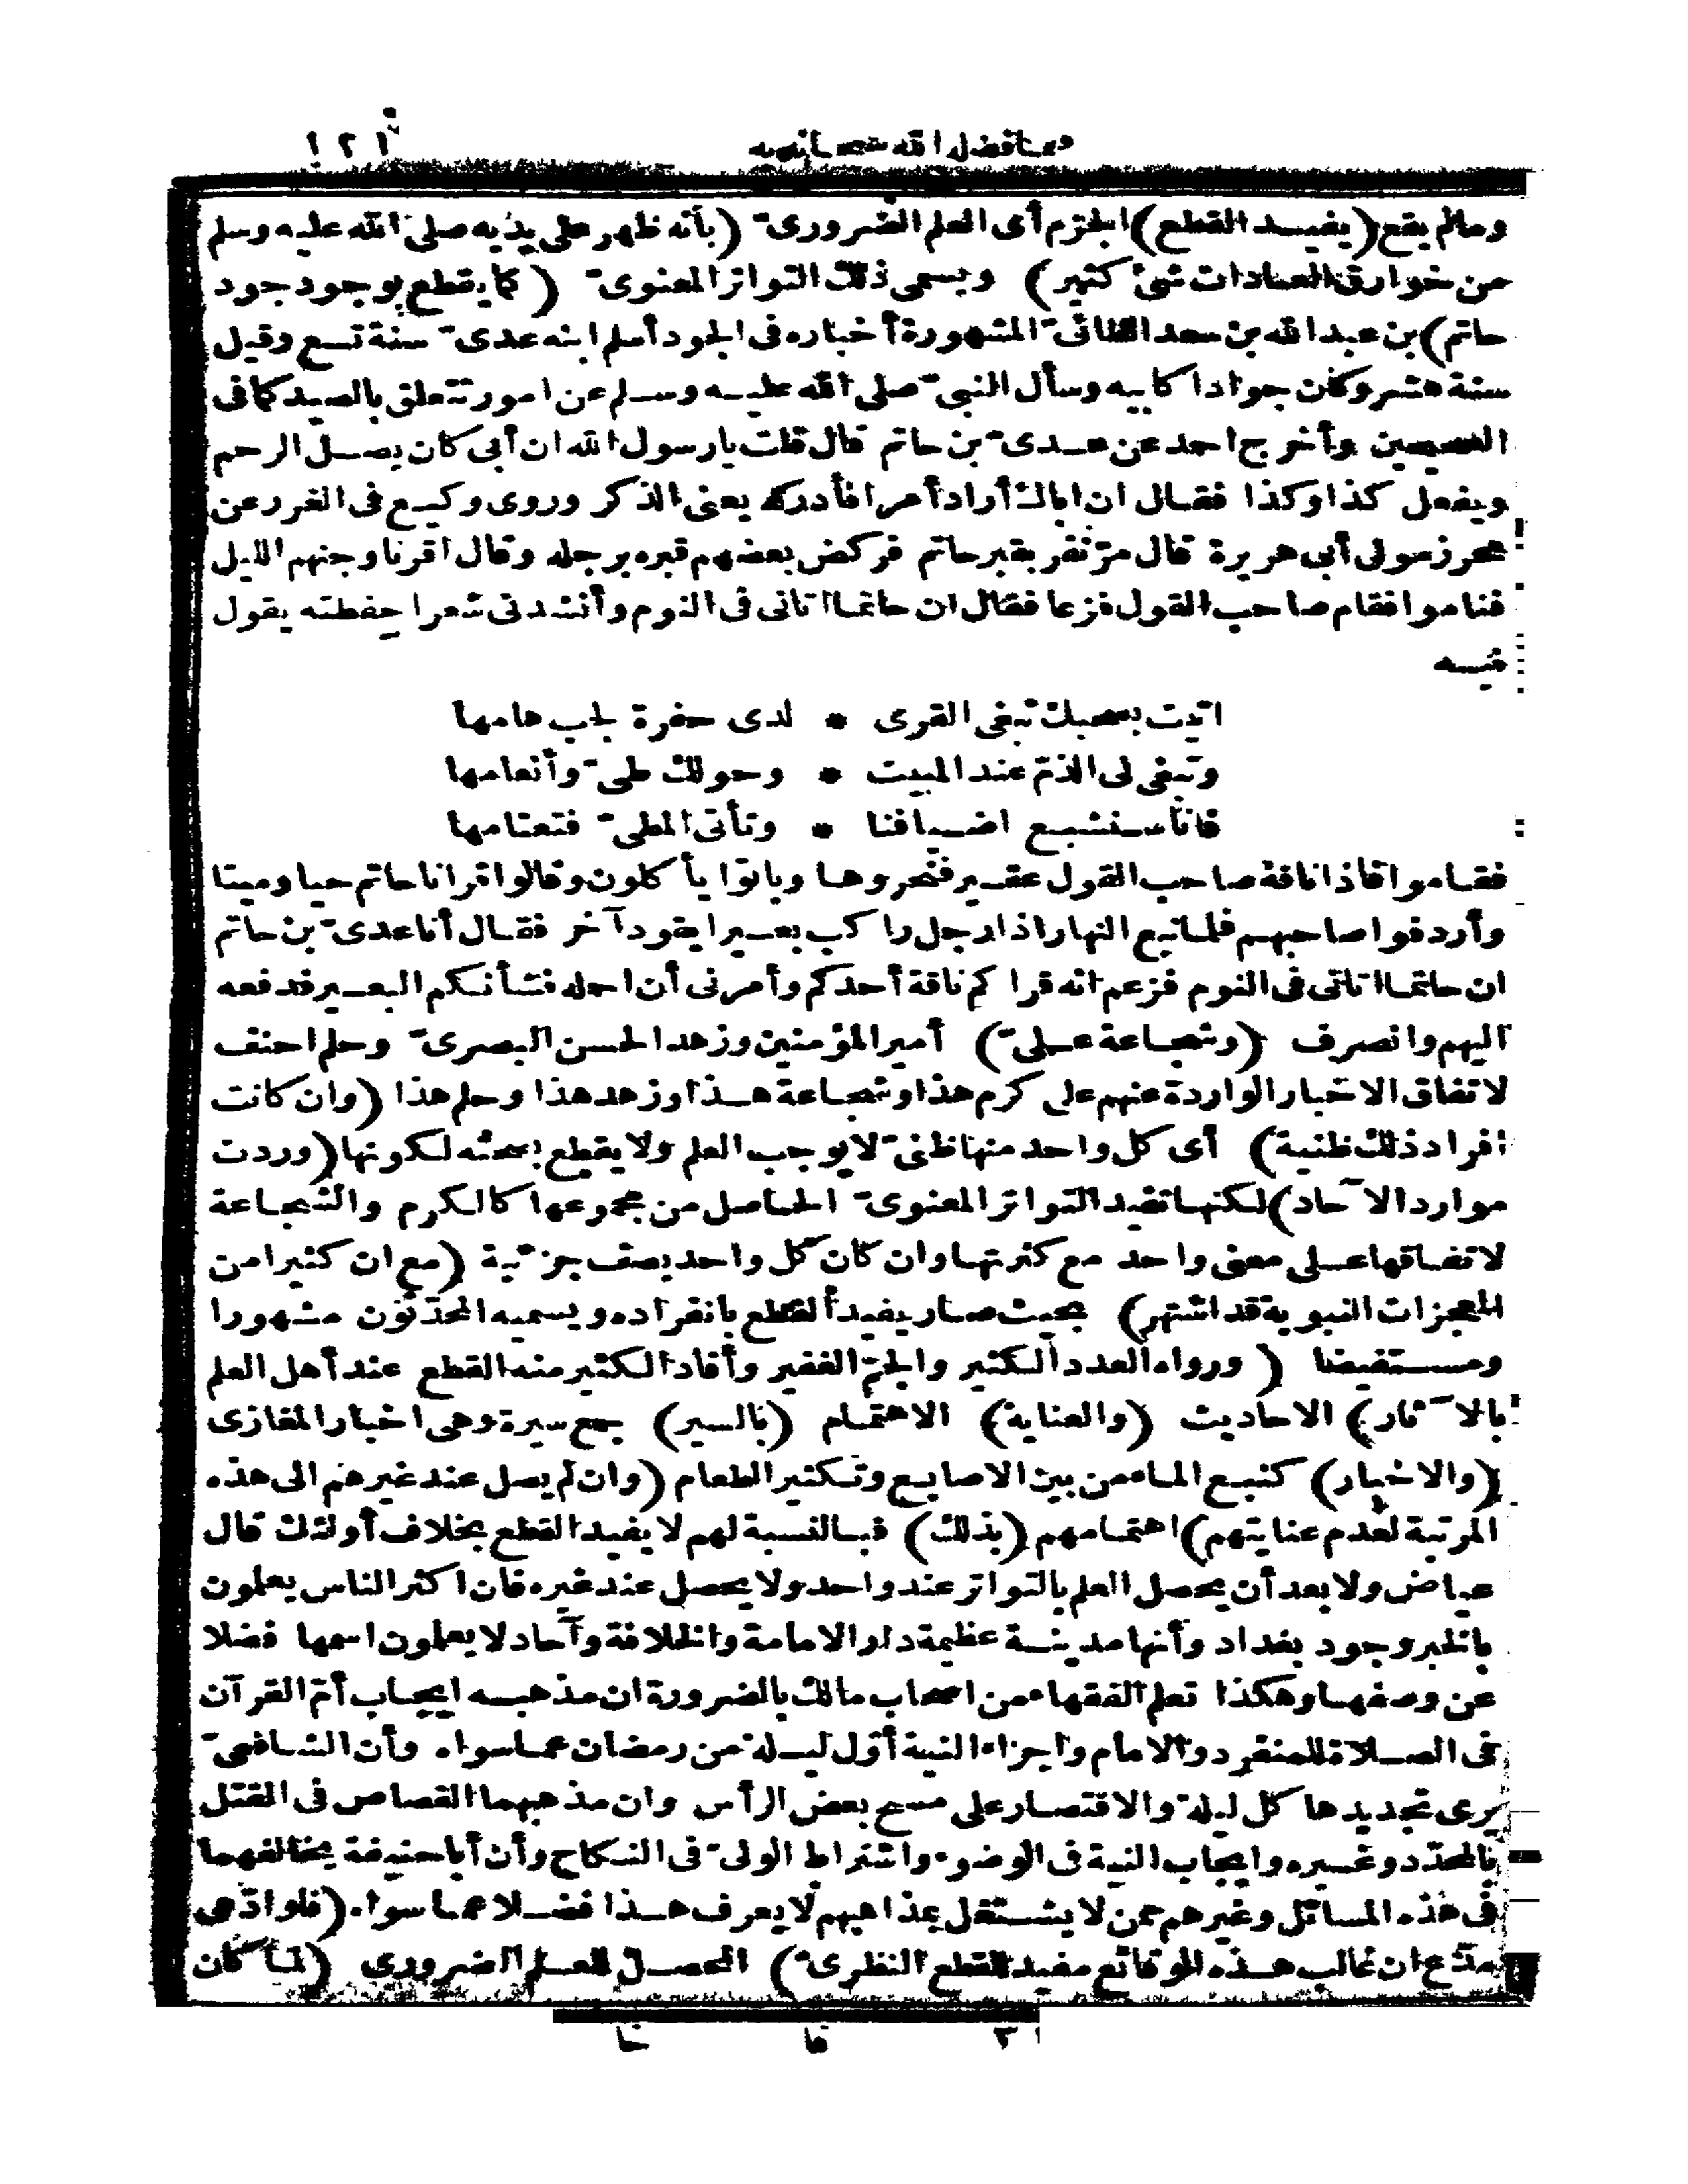 ومما فضل الله تعالى به ١٢١
ومالم يقع (يفيد القطع) الجزم أى العلم الضرورى (بأنه ظهر على يديه صلى الله عليه وسلم
من خوارق العادات شئ كثير) ويسمى ذلك التواتر المعنوى (كما يقطع بوجود جود
حاتم) بن عبد الله بن سعد الطائى المشهورة أخباره فى الجود أسلم ابنه عدى سنة تسع وقيل
سنة عشر وكان جوادا كابيه وسأل النبى صلى الله عليه وسلم عن امور تتعلق بالصيد كما فى
الصحيحين وأخرج احمد عن عدى بن حاتم قال قلت يا رسول الله ان أبى كان يصل الرحم
ويفعل كذا وكذا فقال ان اباك أراد أمرا فأدركه يعنى الذكر وروى وكيع فى الغرر عن
محرز مولى أبى هريرة قال مر نفر بقبر حاتم فركض بعضهم قبره برجله وقال اقرنا وجنهم الليل
فناموا فقام صاحب القول فزعا فقال ان حاتما اتانى فى النوم وأنشدنى شعرا حفظته يقول
فيه
اتيت بصحبك تبغى القرى * لدى حفرة لجب هامها
وتبغى لى الذم عند المبيت * وحولك طى وأنعامها
فانا سنشبع اضيافنا * وتأتى المطى فتعتامها
فقاموا فاذا ناقة صاحب القول عقير فنحروها وباتوا يأكلون وقالوا قرانا حاتم حيا وميتا
وأردفوا صاحبهم فلما تيع النهار اذا رجل راكب بعيرا يقود آخر فقال أنا عدى بن حاتم
ان حاتما اتانى فى النوم فزعم انه قراكم ناقة أحدكم وأمرنى أن احمله فشأنكم البعير فدفعه
اليهم وانصرف (وشجاعة على) أمير المؤمنين وزهد الحسن البصرى وحلم احنف
لاتفاق الاخبار الواردة عنهم على كرم هذا وشجاعة هذا وزهد هذا وحلم هذا (وان كانت
افراد ذلك ظنية) أى كل واحد منها ظنى لا يوجب العلم ولا يقطع بصحته لكونها (وردت
موارد الآحاد) لكنها تفيد التواتر المعنوى الحاصل من مجموعها كالكرم والشجاعة
لاتفاقها على معنى واحد مع كثرتها وان كان كل واحد بصف جزئية (مع ان كثيرا من
المعجزات النبوية قد اشتهر) بحيث صار يفيد القطع بانفراده ويسميه المحدثون مشهورا
ومستفيضا (ورواه العدد الكثير والجم الغفير وأفاد الكثير منه القطع عند أهل العلم
بالآثار) الاحاديث (والعناية) الاهتمام (بالسير) جمع سيرة وهى اخبار المغازى
(والاخبار) كنبع الماء من بين الاصابع وتكثير الطعام (وان لم يصل عند غيرهم الى هذه
المرتبة لعدم عنايتهم) اهتمامهم (بذلك) فبالنسبة لهم لا يفيد القطع بخلاف أولئك قال
عياض ولا بعد أن يحصل العلم بالتواتر عند واحد ولا يحصل عند غيره فان اكثر الناس يعلمون
بالخبر وجود بغداد وأنها مدينة عظيمة دار الامامة والخلافة وآحاد لا يعلمون اسمها فضلا
عن وصفها وهكذا تعلم الفقهاء من اصحاب مالك بالضرورة ان مذهبه ايجاب أم القرآن
فى الصلاة للمنفرد والامام واجزاء النية أول ليلة من رمضان عما سواه وأن الشافعى
يرى تجديدها كل ليلة والاقتصار على مسح بعض الرأس وان مذهبهما القصاص فى القتل
بالمحدد وغيره وايجاب النية فى الوضوء واشتراط الولى فى النكاح وأن أبا حنيفة يخالفهما
فى هذه المسائل وغيرهم ممن لا يشتغل بمذاهبهم لا يعرف هذا فضلا عما سواه (فلو ادعى
مدع ان غالب هذه الوقائع مفيد للقطع النظرى) المحصل للعلم الضرورى (لما كان
٣ قا خا